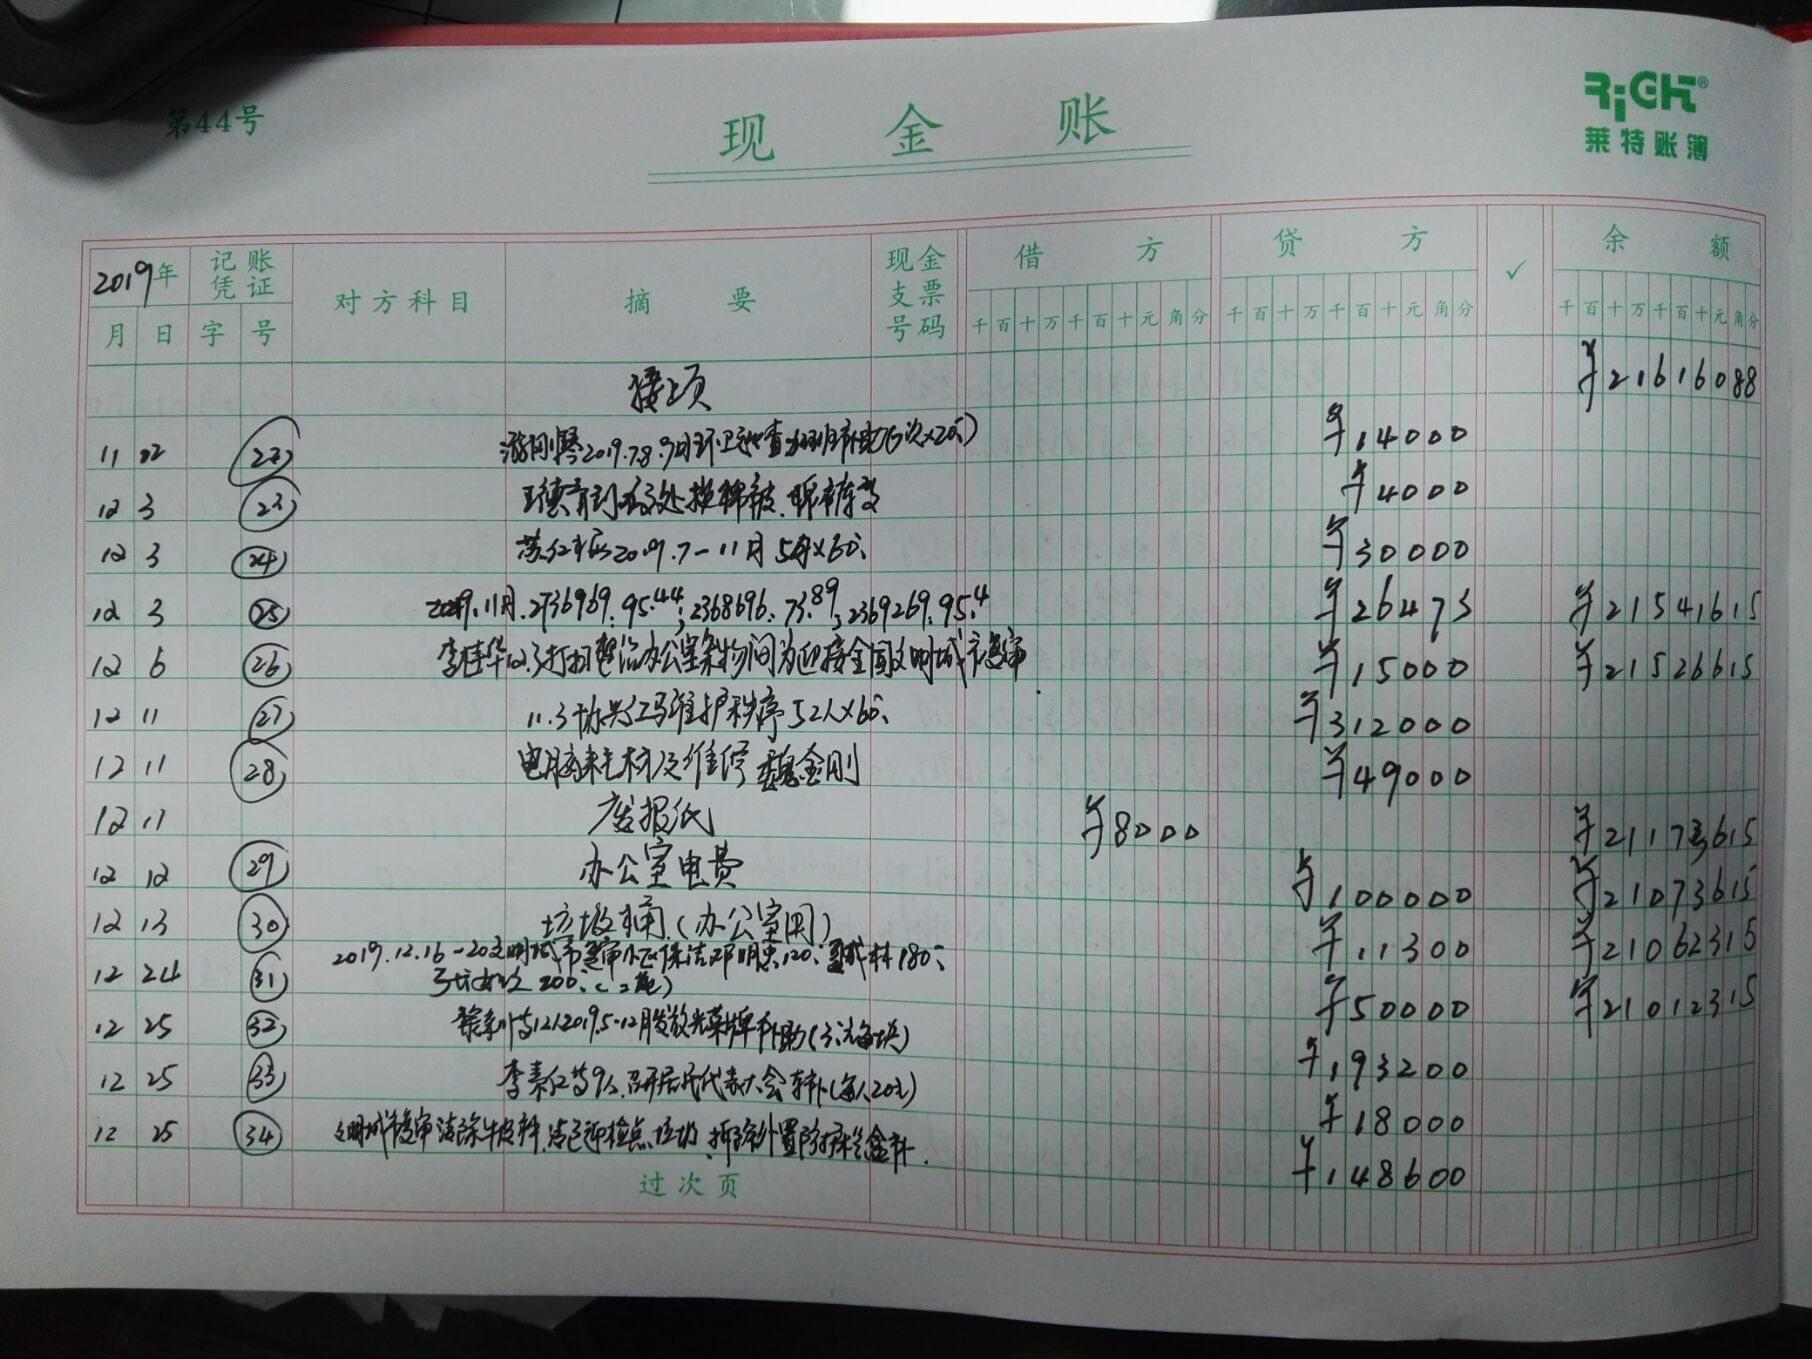 第44号
现金账
RiCH®
莱特账簿
2019年 记账凭证 对方科目 摘要 现金支票号码 借方 贷方 ✓ 余额
月 日 字 号 千百十万千百十元角分 千百十万千百十元角分 千百十万千百十元角分
接上页 ¥21616088
11 22 2019.7.8.9月环卫 ¥14000
12 3 23 ¥4000
12 3 24 2019.7-11月 5月×60 ¥30000
12 3 25 2019.11月.2736969:95.44;2368696:73.89;2369269:95.4 ¥26473 ¥21541615
12 6 26 李桂华12.3打扫整治办公室杂物间为迎接全国文明城市复审 ¥15000 ¥21526615
12 11 27 11.3协兴红马维护秩序52人×60 ¥312000
12 11 28 电脑耗材及维修 魏金刚 ¥49000
12 11 废报纸 ¥8000 ¥21173615
12 12 29 办公室电费 ¥100000 ¥21073615
12 13 30 垃圾桶(办公室用) ¥11300 ¥21062315
2019.12.16-20文明城市复审 保洁邓明忠120
12 24 31 200 ¥50000 ¥21012315
12 25 32 2019.5-12月发放光荣牌补助 ¥193200
12 25 33 李素红等9人召开居民代表大会补(每人20元) ¥18000
12 25 34 文明城市复审清除牛皮癣 ¥148600
过次页